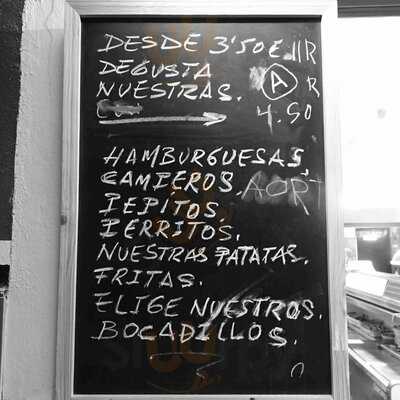 DESDE 3'50€ 11R
DEGUSTA A R
NUESTRAS. 4.50
HAMBURGUESAS,
CAMPEROS.
PEPITOS.
PERRITOS.
NUESTRAS PATATAS.
FRITAS.
ELIGE NUESTROS.
BOCADILLOS.